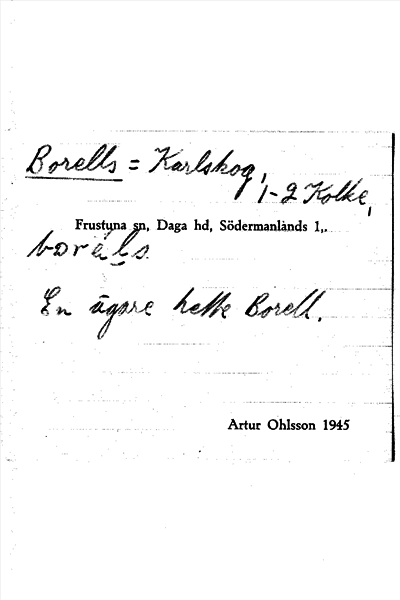 Borells = Karlskog,
1-2 Kolke,
Frustuna sn, Daga hd, Södermanlands l,.
borels.
En ägare hette Borell.
Artur Ohlsson 1945